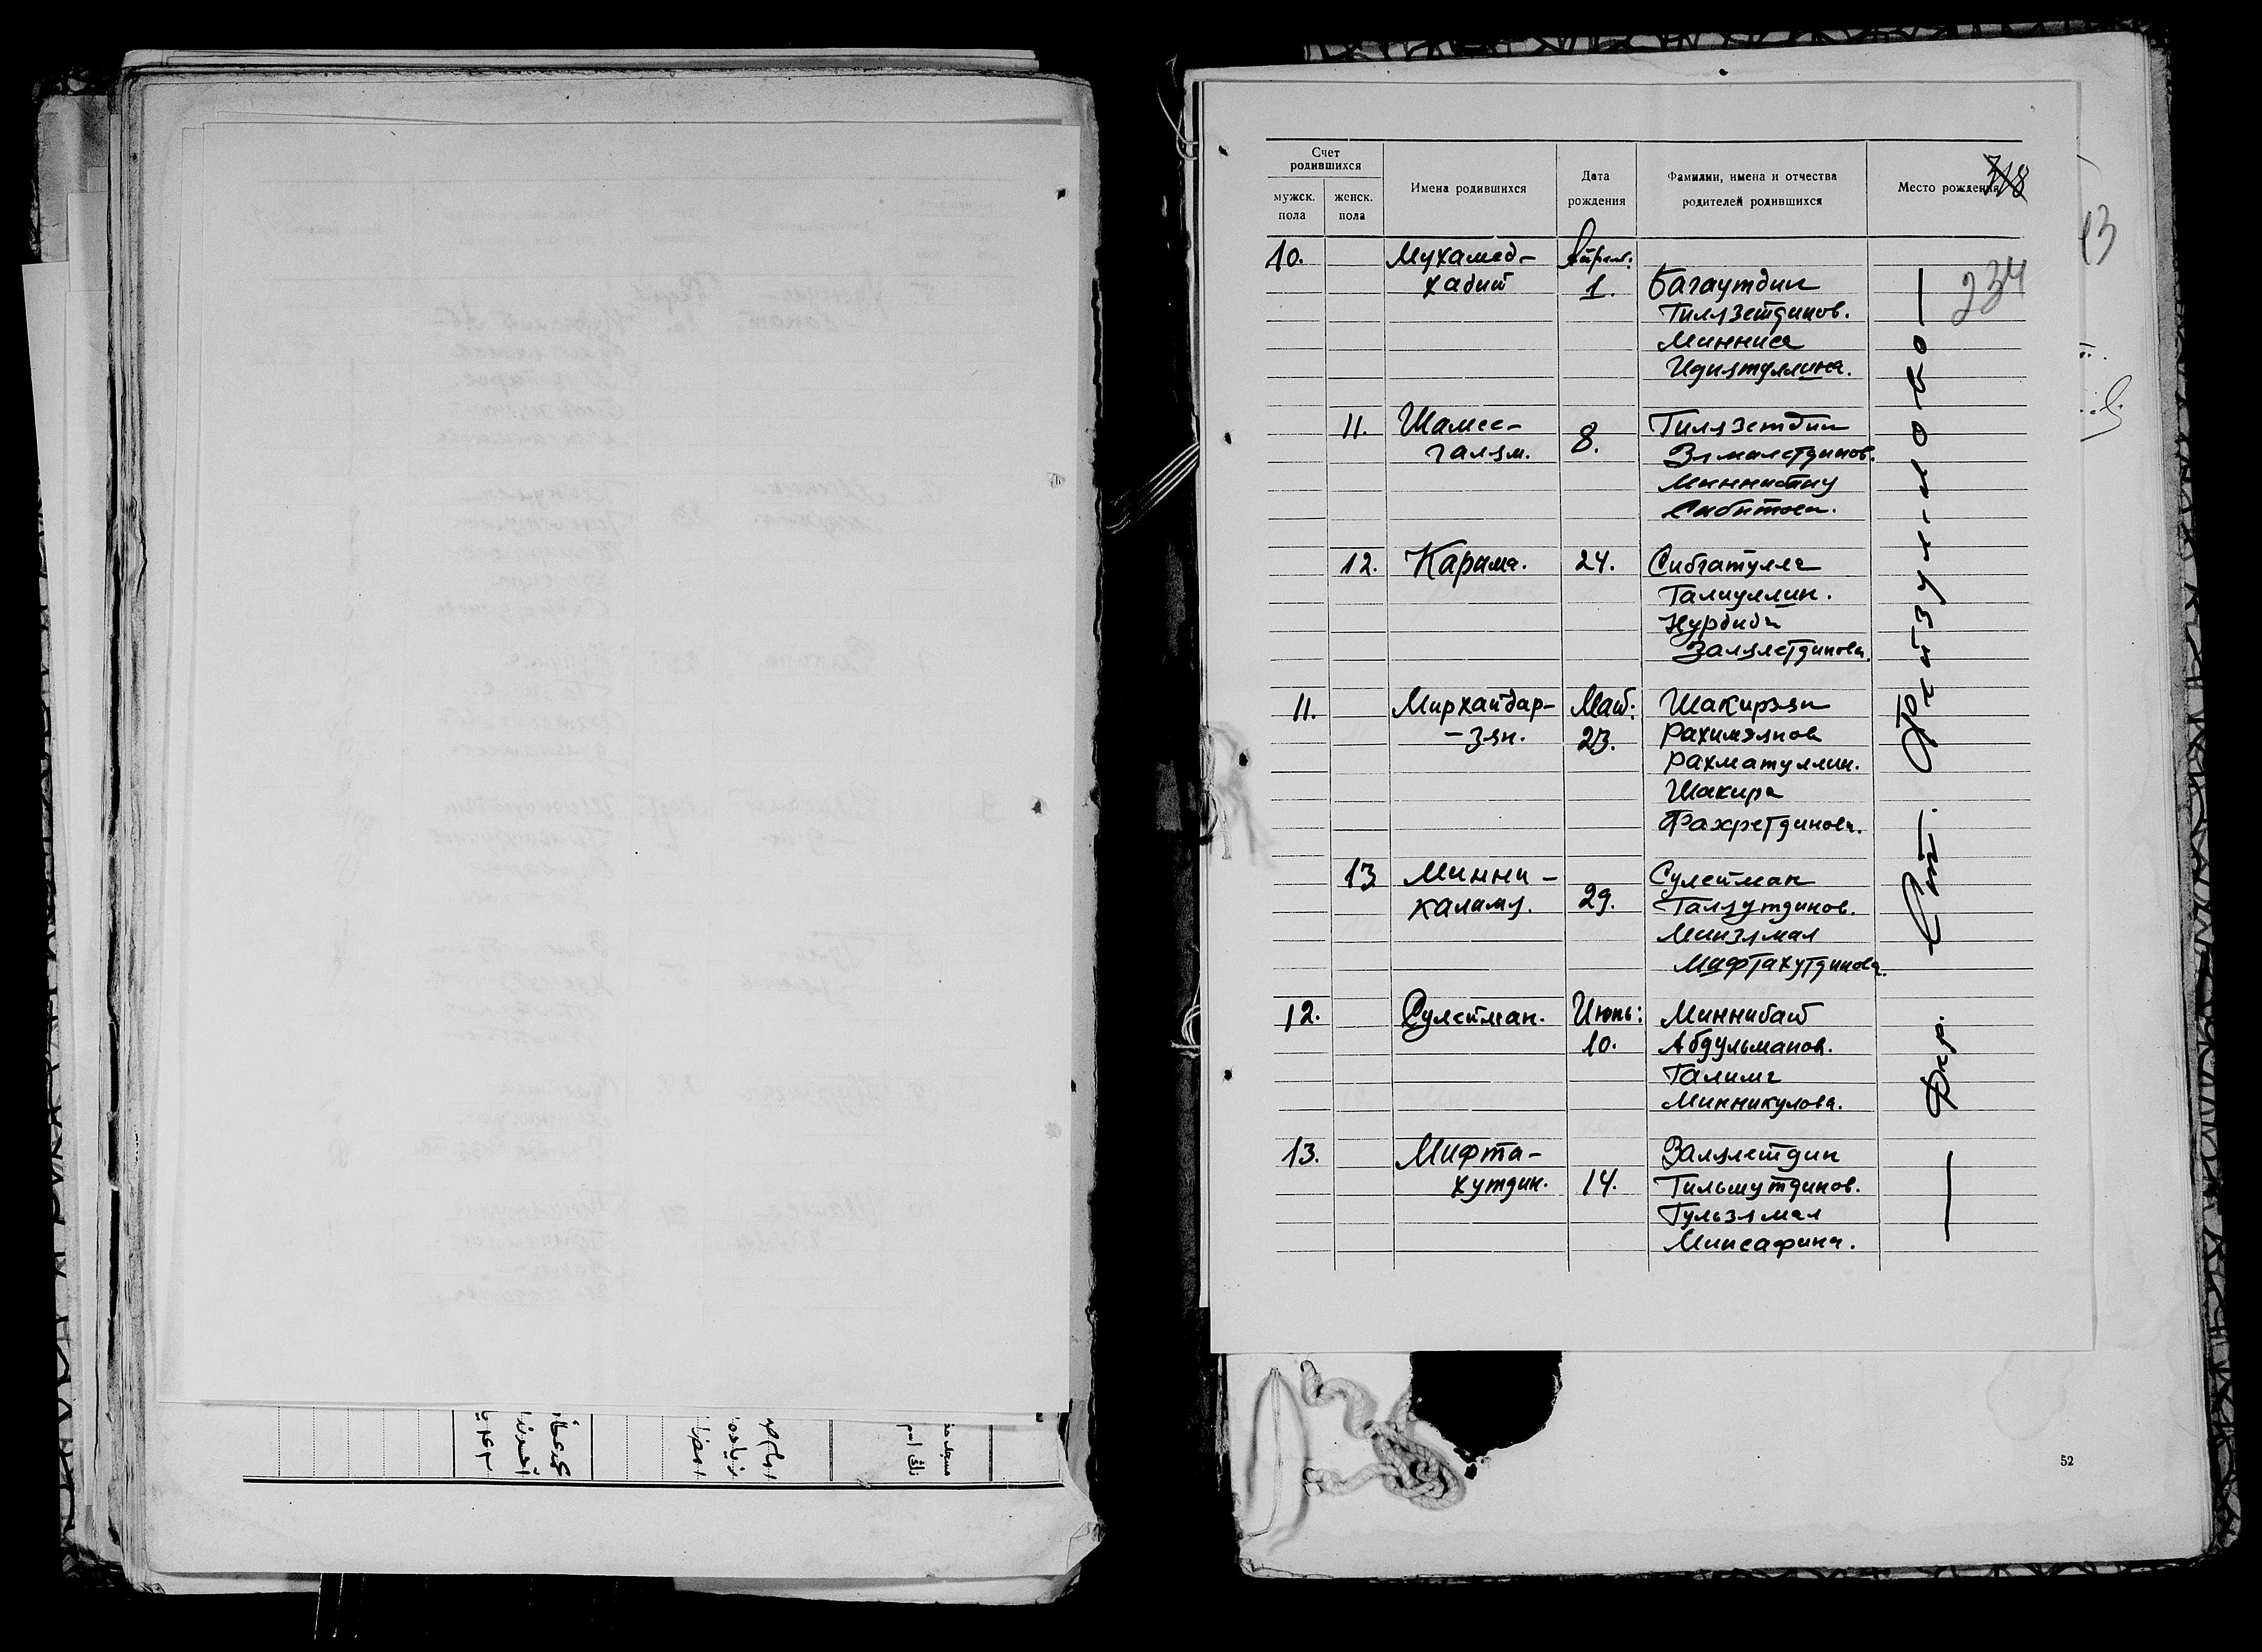 Счет
родившихся
мужск.
пола
женск.
пола
Имена родившихся
Дата
рождения
Фамилии, имена и отчества
родителей родившихся
Место рождения
318
234
10. Мухамед- Апрель:
хабий 1. Багаутдин
Гилязетдинов.
Минниса
Идиятуллина.
11. Шамсе- 8. Гилязетдин
галям. Зямалетдинов.
Миннибану
Сабитова.
12. Карима. 24. Сибгатулла
Галиуллин.
Нурбиби
Залялетдинова.
11. Мирхайдар- Май: Шакирзян
-зян. 23. Рахимзянов
Рахматуллин.
Шакира
Фахретдинова.
13 Минни- Сулейман
камамя. 29. Галяутдинов.
Минзямал
Мифтахутдинова.
12. Сулейман. Июнь: Миннибай
10. Абдульманов.
Галима
Минникулова.
13. Мифта- Залялетдин
хутдин. 14. Гильмутдинов.
Гульзямал
Минсафина.
Дер.
52
13